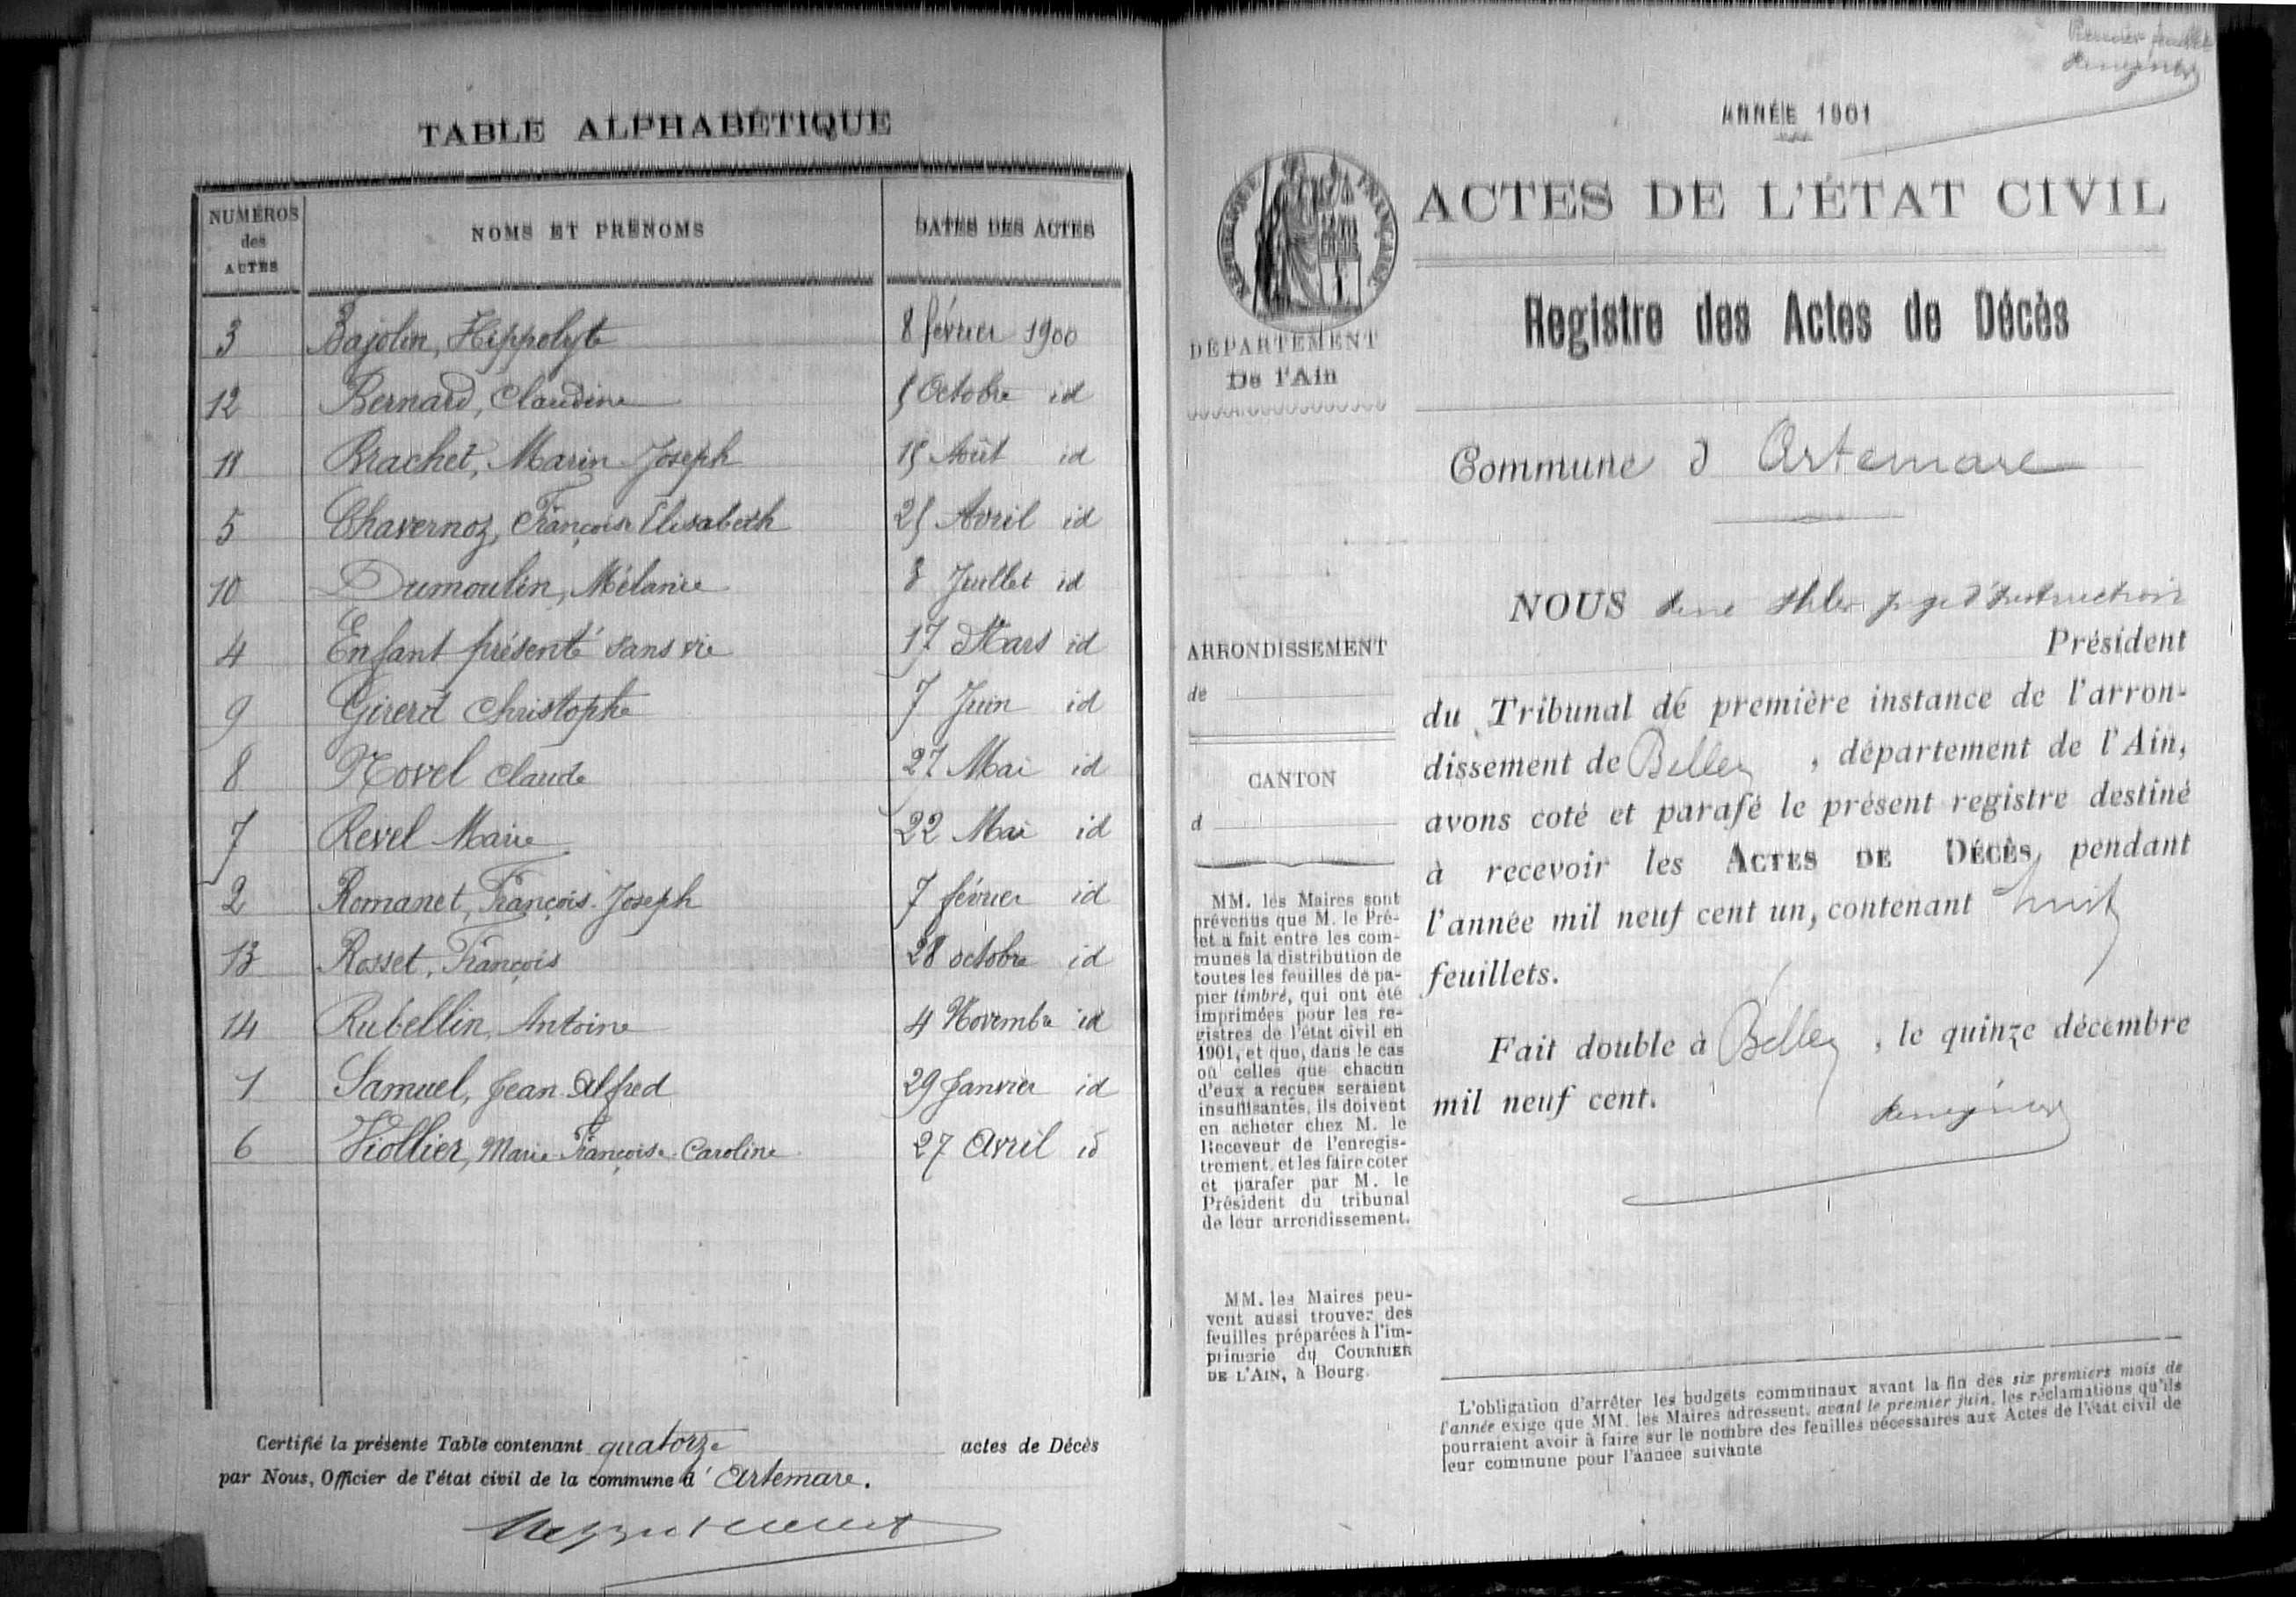 TABLE ALPHABÉTIQUE
NUMÉROS des ACTES NOMS ET PRÉNOMS DATES DES ACTES
3 Bajolin, Hippolyte 8 février 1900
12 Bernard, Claudine 5 Octobre id
11 Brachet, Marin Joseph 15 Août id
5 Chavernoz, Françoise Elisabeth 25 Avril id
10 Dumoulin, Mélanie 8 Juillet id
4 Enfant présenté sans vie 17 Mars id
9 Girerd Christophe 7 Juin id
8 Novel Claude 27 Mai id
7 Revel Marie 22 Mai id
2 Romanet, François Joseph 7 février id
13 Rosset, François 28 octobre id
14 Rubellin, Antoine 4 Novembre id
1 Samuel, Jean Alfred 29 Janvier id
6 Viollier, Marie Françoise Caroline 27 Avril id
Certifié la présente Table contenant quatorze actes de Décès
par Nous, Officier de l'état civil de la commune d'Artemare.
Premier feuillet
ANNÉE 1901
RÉPUBLIQUE FRANÇAISE
ACTES DE L'ÉTAT CIVIL
Registre des Actes de Décès
DÉPARTEMENT
De l'Ain
Commune d Artemare
ARRONDISSEMENT
de
CANTON
d
MM. les Maires sont
prévenus que M. le Pré-
fet a fait entre les com-
munes la distribution de
toutes les feuilles de pa-
pier timbré, qui ont été
imprimées pour les re-
gistres de l'état civil en
1901, et que, dans le cas
où celles que chacun
d'eux a reçues seraient
insuffisantes, ils doivent
en acheter chez M. le
Receveur de l'enregis-
trement, et les faire coter
et parafer par M. le
Président du tribunal
de leur arrondissement.
MM. les Maires peu-
vent aussi trouver des
feuilles préparées à l'im-
primerie du COURRIER
DE L'AIN, à Bourg.
NOUS juge d'instruction
Président
du Tribunal de première instance de l'arron-
dissement de Belley, département de l'Ain,
avons coté et parafé le présent registre destiné
à recevoir les ACTES DE DÉCÈS, pendant
l'année mil neuf cent un, contenant huit
feuillets.
Fait double à Belley, le quinze décembre
mil neuf cent.
L'obligation d'arrêter les budgets communaux avant la fin des six premiers mois de
l'année exige que MM. les Maires adressent, avant le premier juin, les réclamations qu'ils
pourraient avoir à faire sur le nombre des feuilles nécessaires aux Actes de l'état civil de
leur commune pour l'année suivante